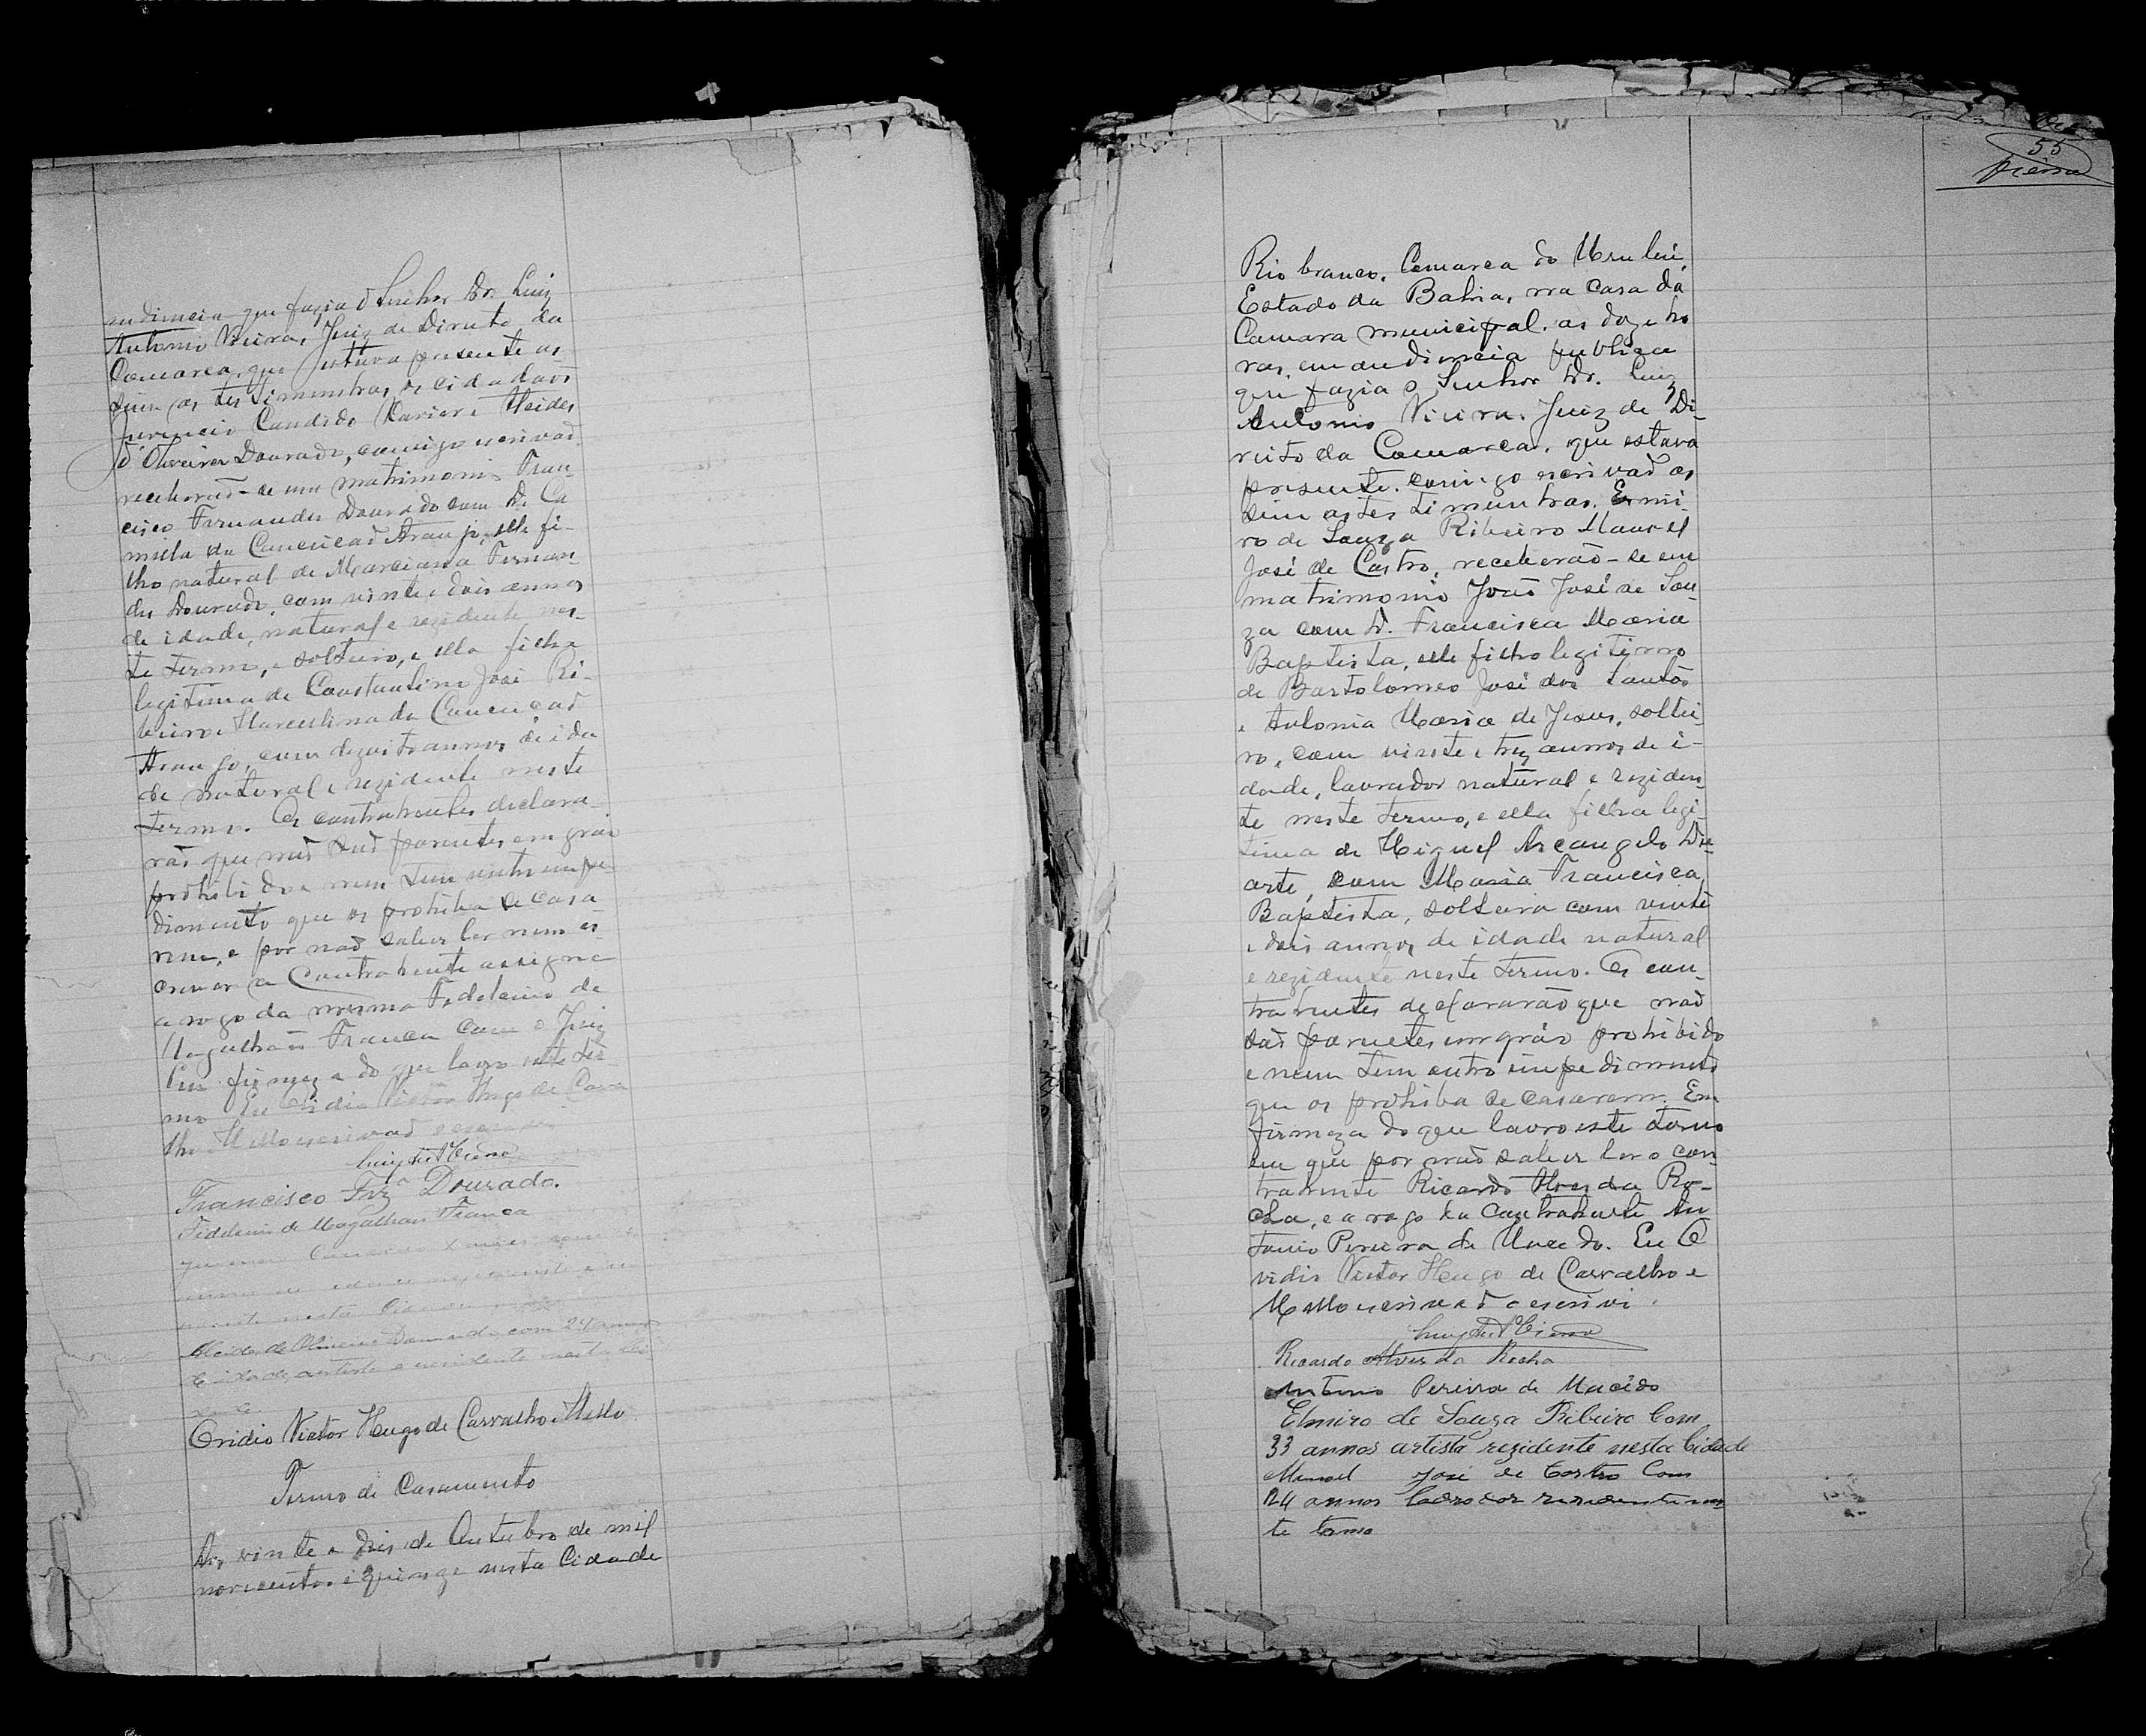 audiencia que fazia o Senhor Dr. Luiz
Antonio Vieira, Juiz de Direito da
Comarca, que estava presente as
sim as testimunhas, os cidadãos
Juvencio Candido Xavier e Alcides
d'Oliveira Dourado, comigo escrivaõ
receberaõ-se em matrimonio Fran
cisco Fernandes Dourado com D. Ca
milla da Conceicaõ Araujo, elle fi-
lho natural de Marciana Fernan-
des Dourado, com vinte e dois annos
de idade, natural e rezidente nes-
te termo, e solteiro, e ella filha
legitima de Constantino José Ri-
beiro e Marculina da Conceicaõ
Araujo, com dezoito annos de ida
de natural e rezidente neste
termo. Os contrahentes declara-
raõ que naõ saõ parentes em gráo
prohibido e nem tem outro impe-
dimento que os prohiba de casa
rem, e por naõ saber ler nem es-
crever a Contrahente assigna
a rogo da mesma Fidelcino de
Magalhães Franca com o Juiz
Em firmeza do que lavro este ter
mo Eu Ovidio Victor Hugo de Carva
lho Mello escrivaõ o escrevi
Francisco Frz.ª Dourado.
Fidelcino de Magalhães Franca
Candido Xavier
Alcides de Oliveira Dourado com 24 annos
de idade, artista e residente nesta Ci
dade.
Ovidio Victor Hugo de Carvalho e Mello
Termo de Casamento
Aos vinte e dois de Outubro de mil
novecentos e quinze nesta Cidade
55
Vieira
Rio branco, Comarca do Urubú,
Estado da Bahia, na casa da
Camara municipal, as doze ho
ras, em audiencia publica
que fazia o Senhor Dr. Luiz
Antonio Vieira, Juiz de Di-
reito da Comarca, que estava
presente, comigo escrivaõ as
sim as testimunhas, Ermi-
ro de Souza Ribeiro Manoel
José de Castro, receberão-se em
matrimonio Joaõ José de Sou-
za com D. Francisca Maria
Baptista, elle filho legitimo
de Bartolomeo José dos Santos
e Antonia Maria de Jesus, soltei-
ro, com vinte e trez annos de i-
dade, lavrador natural e reziden-
te neste termo, e ella filha legi-
tima de Miguel Arcangelo Du-
arte, com Maria Francisca
Baptista, solteira com vinte
e dois annos de idade natural
e rezidente neste termo. Os con-
trahentes declararão que naõ
saõ parentes em gráo prohibido
e nem tem outro impedimento
que os prohiba de casarem. Em
firmeza do que lavro este termo
em que por naõ saber ler o con-
trahente Ricardo Alves da Ro-
cha, e a rogo da Contrahente An
tonio Pereira de Macedo. Eu O
vidio Victor Hugo de Carvalho e
Mello escrivaõ o escrivi.
Ricardo Alves da Rocha
Antonio Pereira de Macêdo
Elmiro de Souza Ribeiro Com
33 annos artista rezidente nesta Cidade
Manoel José de Castro Com
24 annos lavrador rezidente nes
te termo